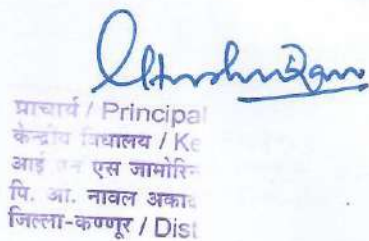 प्राचार्य / Principal
केन्द्रीय विद्यालय / Ke
आई एन एस जामोरिन
पि. आ. नावल अकाद
जिल्ला-कण्णूर / Dist